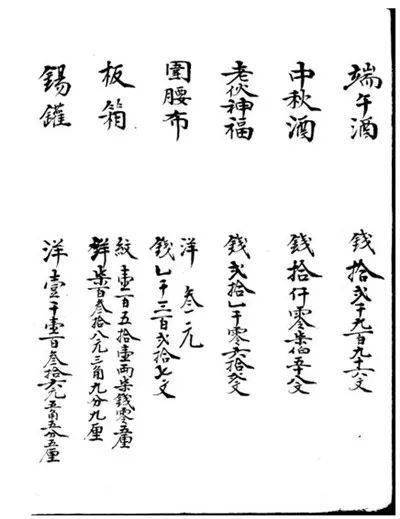 端午酒 錢拾弍千九百九十六文
中秋酒 錢拾仟零柒伯五十八文
老伙神福 錢弍拾千零六拾文
圍腰布 洋叁元
錢千三百弍拾七文
板箱 紋壹百五拾壹兩柒錢零五厘
洋柒百叁拾八元三角九分九厘
錫鑵 洋壹千壹百叁拾六元五角五分五厘